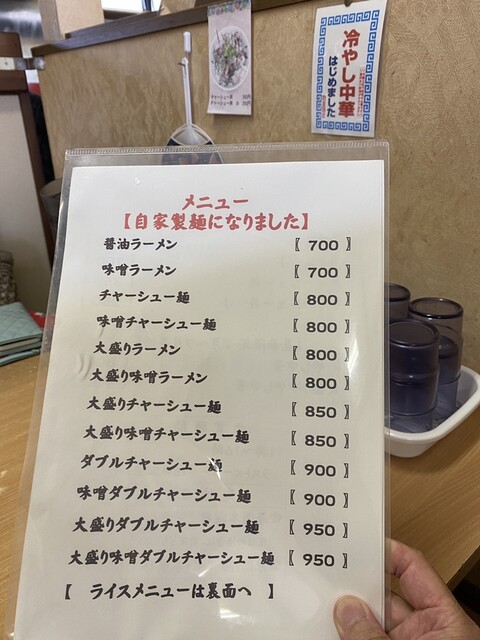 冷やし中華
はじめました
メニュー
【自家製麺になりました】
醤油ラーメン 〖 700 〗
味噌ラーメン 〖 700 〗
チャーシュー麺 〖 800 〗
味噌チャーシュー麺 〖 800 〗
大盛りラーメン 〖 800 〗
大盛り味噌ラーメン 〖 800 〗
大盛りチャーシュー麺 〖 850 〗
大盛り味噌チャーシュー麺 〖 850 〗
ダブルチャーシュー麺 〖 900 〗
味噌ダブルチャーシュー麺 〖 900 〗
大盛りダブルチャーシュー麺 〖 950 〗
大盛り味噌ダブルチャーシュー麺 〖 950 〗
【 ライスメニューは裏面へ 】